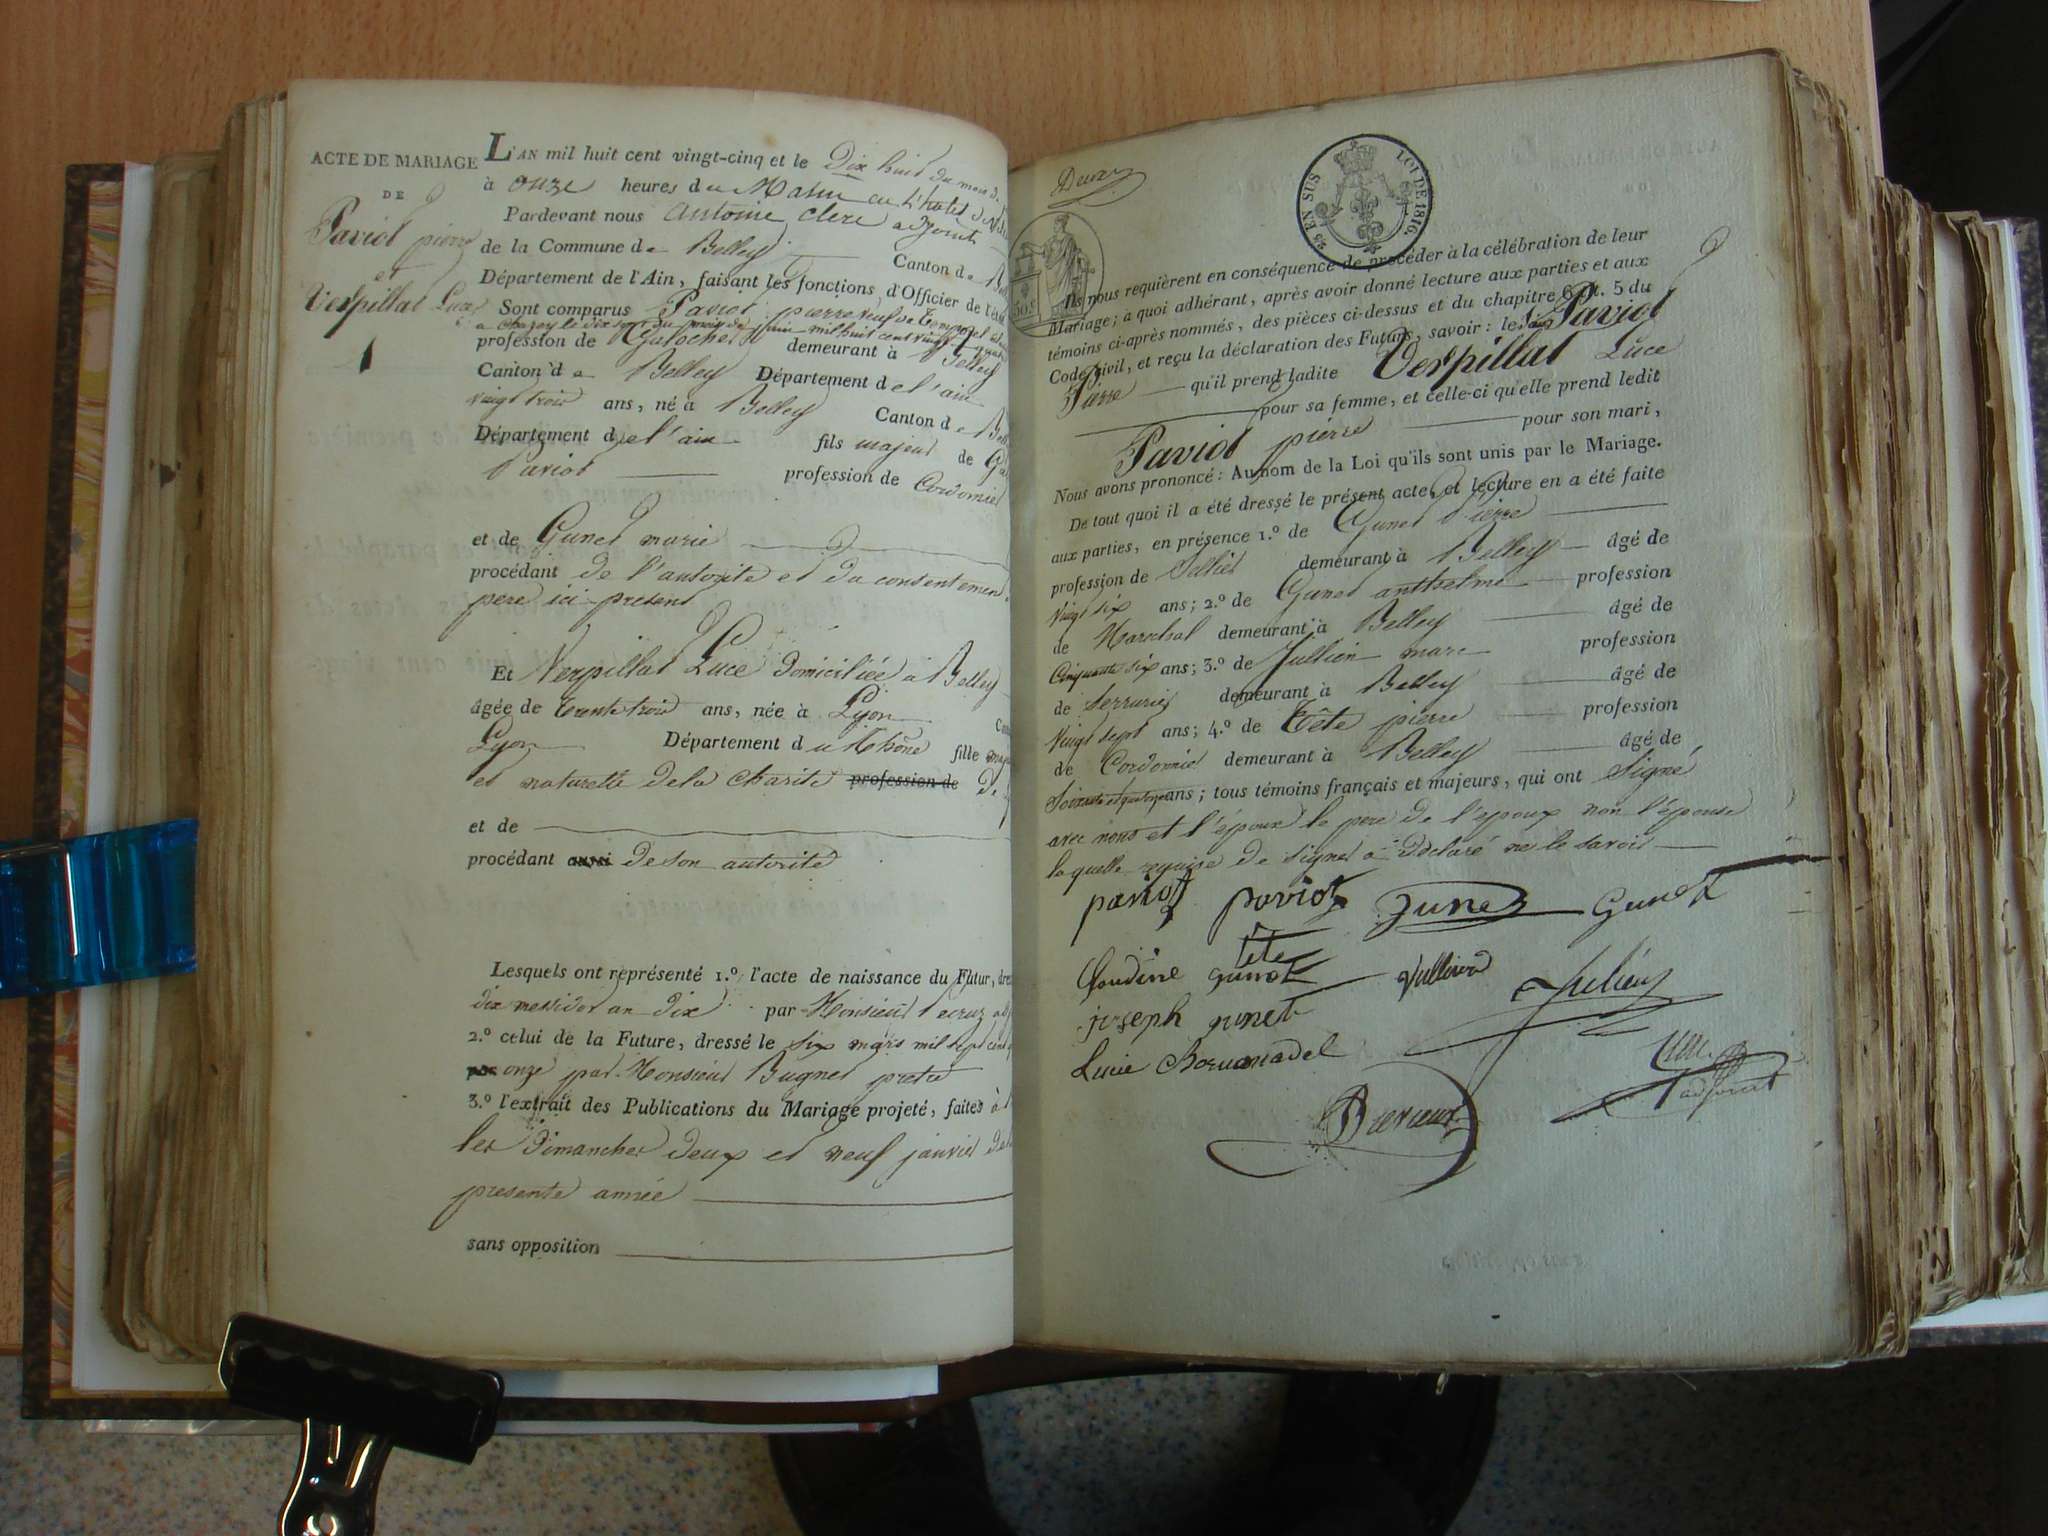 ACTE DE MARIAGE
DE
Paviot pierre
et
Verpillat Luce
L'AN mil huit cent vingt-cinq et le Dix huit du mois de
à onze heures du Matin en l'hotel de
Pardevant nous antoine clerc adjoint
de la Commune de Belley Canton de
Département de l'Ain, faisant les fonctions d'Officier de l'état
Sont comparus Paviot pierre veuf de
a le dix du mois de juin mil huit cent vingt quatre
profession de Galocher demeurant à Belley
Canton de Belley Département de l'ain
vingt trois ans, né à Belley Canton de
Département de l'ain fils majeur de
Paviot profession de Cordonnier
et de Gunet marie
procédant de l'autorité et du consentement
père ici present
Et Verpillat Luce domiciliée à Belley
âgée de trente trois ans, née à Lyon
Lyon Département du Rhône fille
et naturelle de la charité profession de
et de
procédant aussi de son autorité
Lesquels ont représenté 1.º l'acte de naissance du Futur,
dix messidor an dix par Monsieur
2.º celui de la Future, dressé le six mars mil sept cent
par onze par Monsieur Bugnet pretre
3.º l'extrait des Publications du Mariage projeté, faites à
les dimanches deux et neuf janvier de la
presente année
sans opposition
25 EN SUS
LOI DE 1816.
Ils nous requièrent en conséquence de procéder à la célébration de leur
Mariage; à quoi adhérant, après avoir donné lecture aux parties et aux
témoins ci-après nommés, des pièces ci-dessus et du chapitre 6, tit. 5 du
Code civil, et reçu la déclaration des Futurs, savoir: le Paviot
Pierre qu'il prend ladite Verpillat Luce
pour sa femme, et celle-ci qu'elle prend ledit
Paviot pierre pour son mari,
Nous avons prononcé: Au nom de la Loi qu'ils sont unis par le Mariage.
De tout quoi il a été dressé le présent acte, et lecture en a été faite
aux parties, en présence 1.º de Gunet Pierre
profession de Sellier demeurant à Belley âgé de
Vingt six ans; 2.º de Gunet anthelme profession
de Marechal demeurant à Belley âgé de
Cinquante six ans; 3.º de Jullien marc profession
de Serrurier demeurant à Belley âgé de
Vingt sept ans; 4.º de Tête pierre profession
de Cordonnier demeurant à Belley âgé de
Soixante et quatorze ans; tous témoins français et majeurs, qui ont signé
avec nous et l'époux le pere de l'epoux non l'épouse
laquelle requise de signer a declaré ne le savoir
paviot paviot Gunet Gunet
tête
Claudine gunet
joseph gunet
Lucie
adjoint